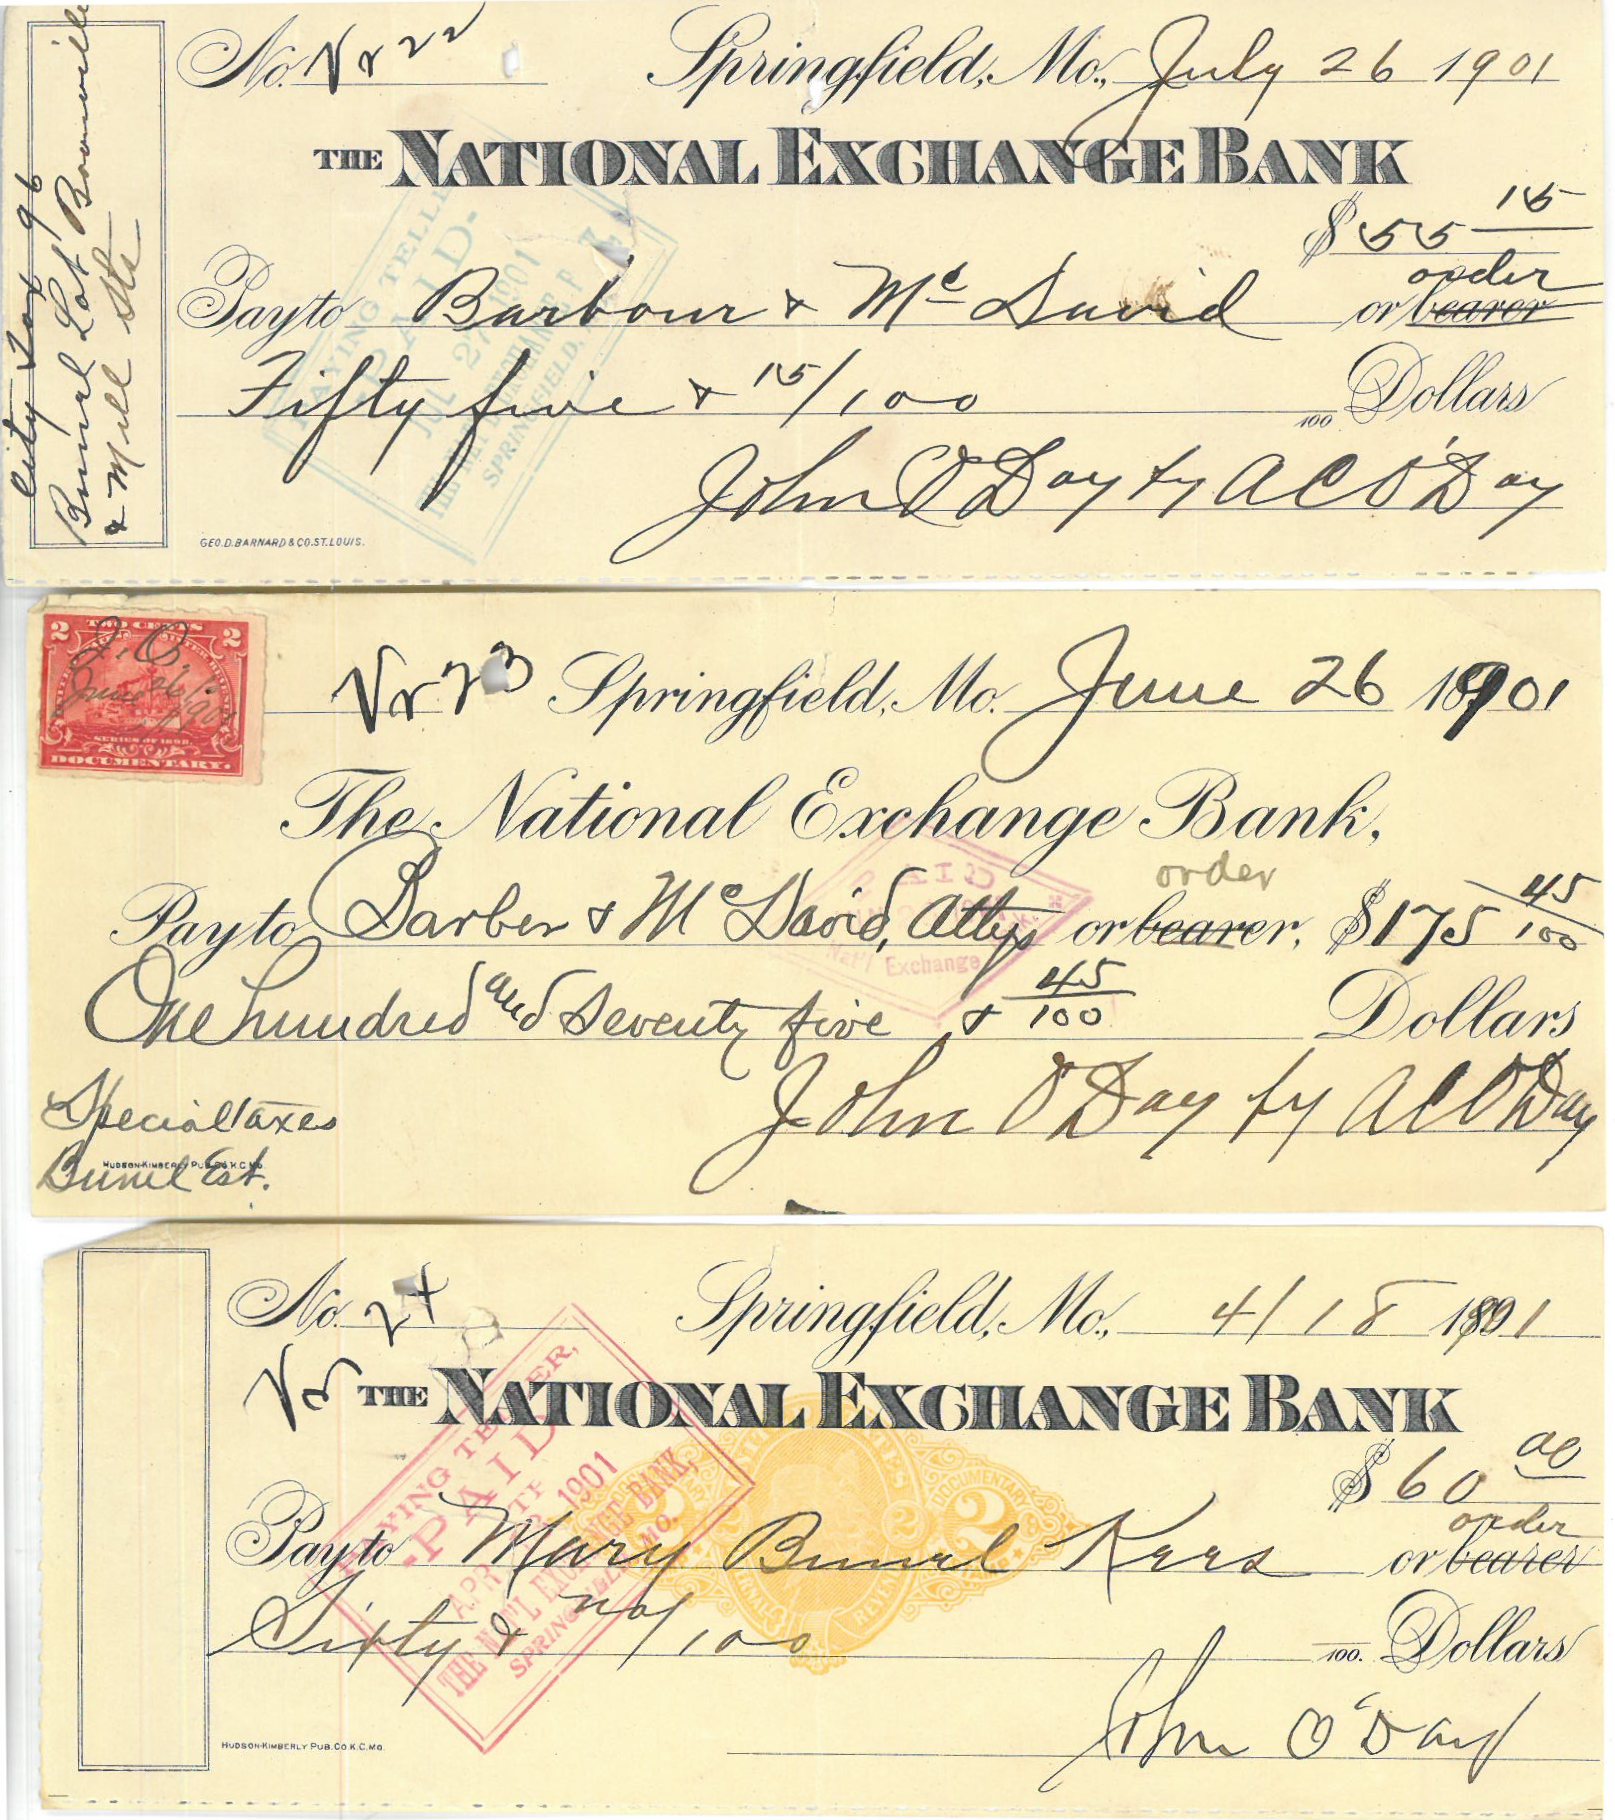 No. Vr 22 Springfield, Mo., July 26 1901
THE NATIONAL EXCHANGE BANK
$55 15
order
Pay to Barbour & Mc David or bearer
Fifty five & 15/100 100 Dollars
John O'Day by A C O'Day
GEO. D. BARNARD & CO. ST. LOUIS.
City Tax 96
Lot Boonville
& Mill Sts
PAYING TELLER
PAID
27 1901
SPRINGFIELD,
2 TWO CENTS 2
J. O.
June 26/1901
SERIES OF 1898.
DOCUMENTARY.
Vr 23 Springfield, Mo. June 26 1901
The National Exchange Bank,
order
Pay to Barber & McDavid, Attys or bearer, $175 45/100
One hundred and Seventy five & 45/100 Dollars
John O'Day by A C O'Day
Special taxes
HUDSON-KIMBERLY PUB. CO. K.C. MO.
Est.
PAID
Nat'l Exchange
No. 24 Springfield, Mo., 4/18 1901
Vr THE NATIONAL EXCHANGE BANK
$60 00
order
Pay to Mary Kees or bearer
Sixty & no/100 100. Dollars
John O'Day
HUDSON-KIMBERLY PUB. CO. K.C. MO.
PAYING TELLER,
PAID
APR 1901
THE NAT'L EXCHANGE BANK,
SPRINGFIELD, MO.
2 DOCUMENTARY 2